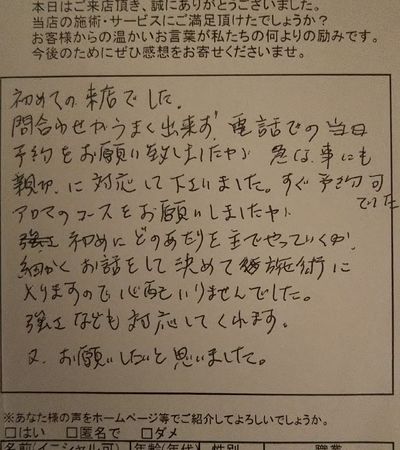 本日はご来店頂き、誠にありがとうございました。
当店の施術・サービスにご満足頂けたでしょうか？
お客様からの温かいお言葉が私たちの何よりの励みです。
今後のためにぜひ感想をお寄せくださいませ。
初めての来店でした。
問合わせがうまく出来ず、電話での当日
予約をお願い致しましたが 急な事にも
親切に対応して下さいました。すぐ予約可
でした
アロマのコースをお願いしましたが
初めにどのあたりを主でやっていくか
細かくお話をして決めて施術に
入りますので心配いりませんでした。
強さなども対応してくれます。
又、お願いしたいと思いました。
※あなた様の声をホームページ等でご紹介してよろしいでしょうか。
□はい □匿名で □ダメ
名前(イニシャル可) 年齢(年代) 性別 職業